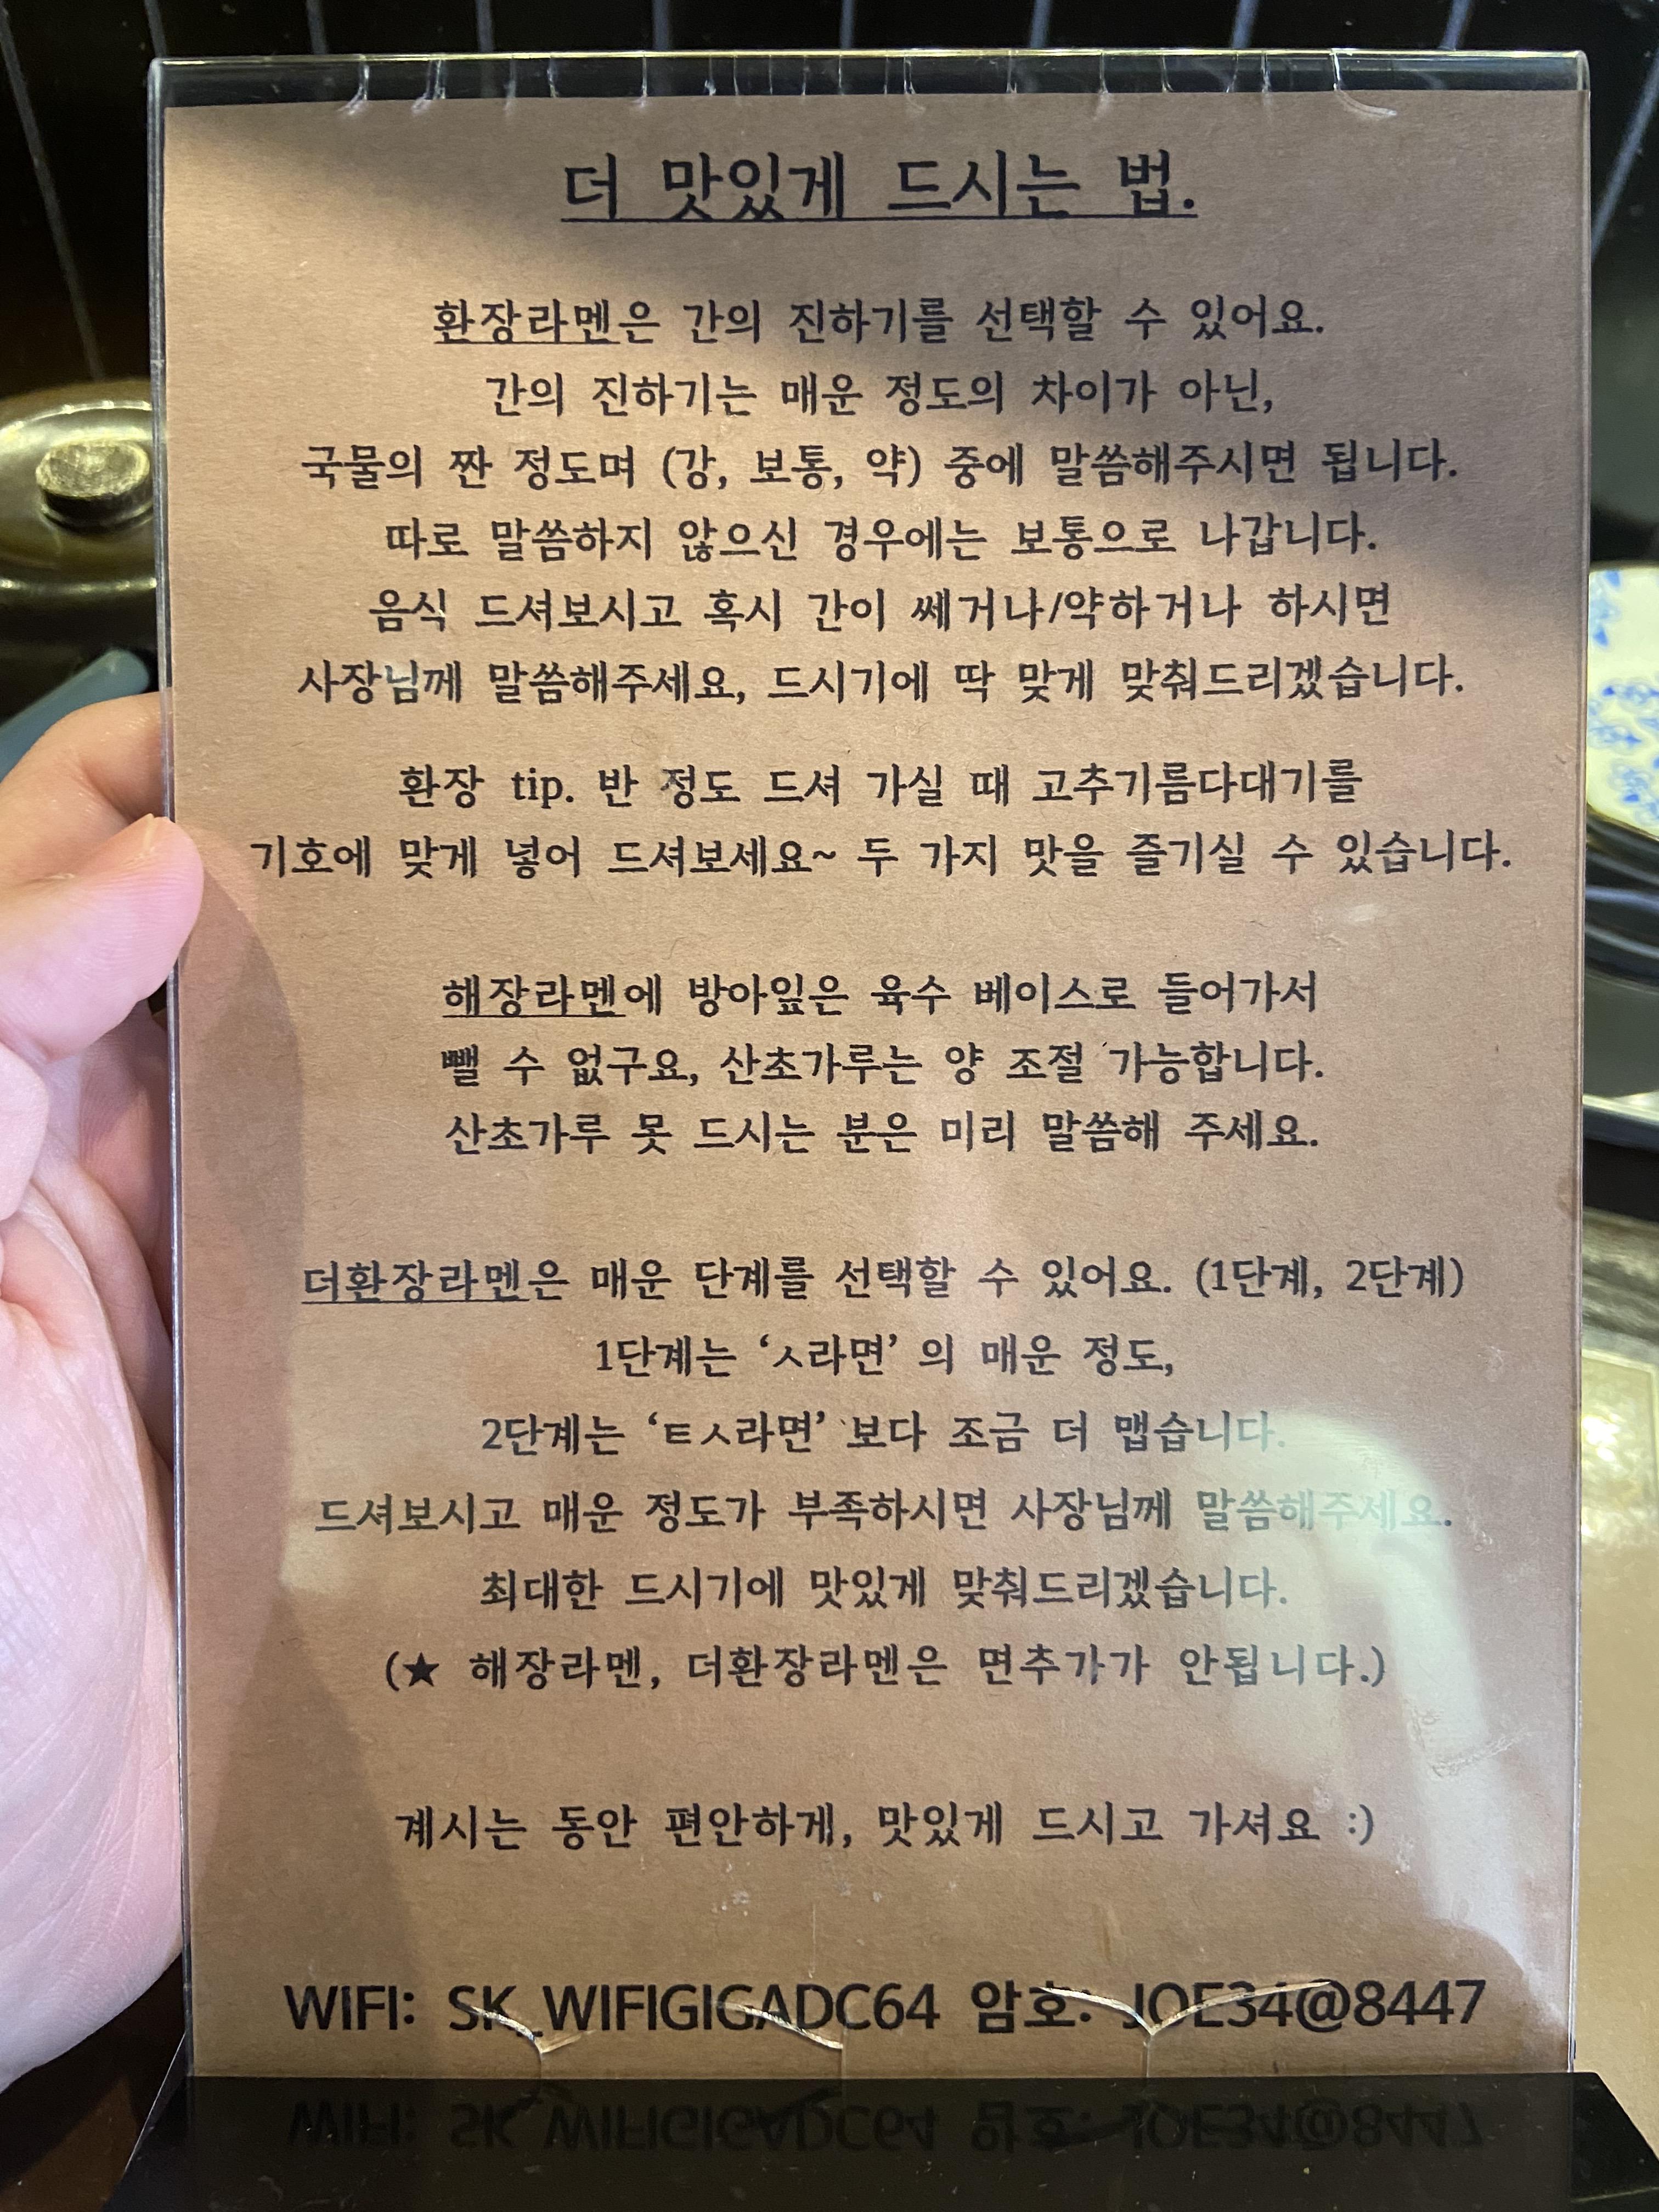 더 맛있게 드시는 법.
환장라멘은 간의 진하기를 선택할 수 있어요.
간의 진하기는 매운 정도의 차이가 아닌,
국물의 짠 정도며 (강, 보통, 약) 중에 말씀해주시면 됩니다.
따로 말씀하지 않으신 경우에는 보통으로 나갑니다.
음식 드셔보시고 혹시 간이 쎄거나/약하거나 하시면
사장님께 말씀해주세요, 드시기에 딱 맞게 맞춰드리겠습니다.
환장 tip. 반 정도 드셔 가실 때 고추기름다대기를
기호에 맞게 넣어 드셔보세요~ 두 가지 맛을 즐기실 수 있습니다.
해장라멘에 방아잎은 육수 베이스로 들어가서
뺄 수 없구요, 산초가루는 양 조절 가능합니다.
산초가루 못 드시는 분은 미리 말씀해 주세요.
더환장라멘은 매운 단계를 선택할 수 있어요. (1단계, 2단계)
1단계는 ‘ㅅ라면’ 의 매운 정도,
2단계는 ‘ㅌㅅ라면’ 보다 조금 더 맵습니다.
드셔보시고 매운 정도가 부족하시면 사장님께 말씀해주세요.
최대한 드시기에 맛있게 맞춰드리겠습니다.
(★ 해장라멘, 더환장라멘은 면추가가 안됩니다.)
계시는 동안 편안하게, 맛있게 드시고 가셔요 :)
WIFI: SK_WIFIGIGADC64 암호: JOE34@8447